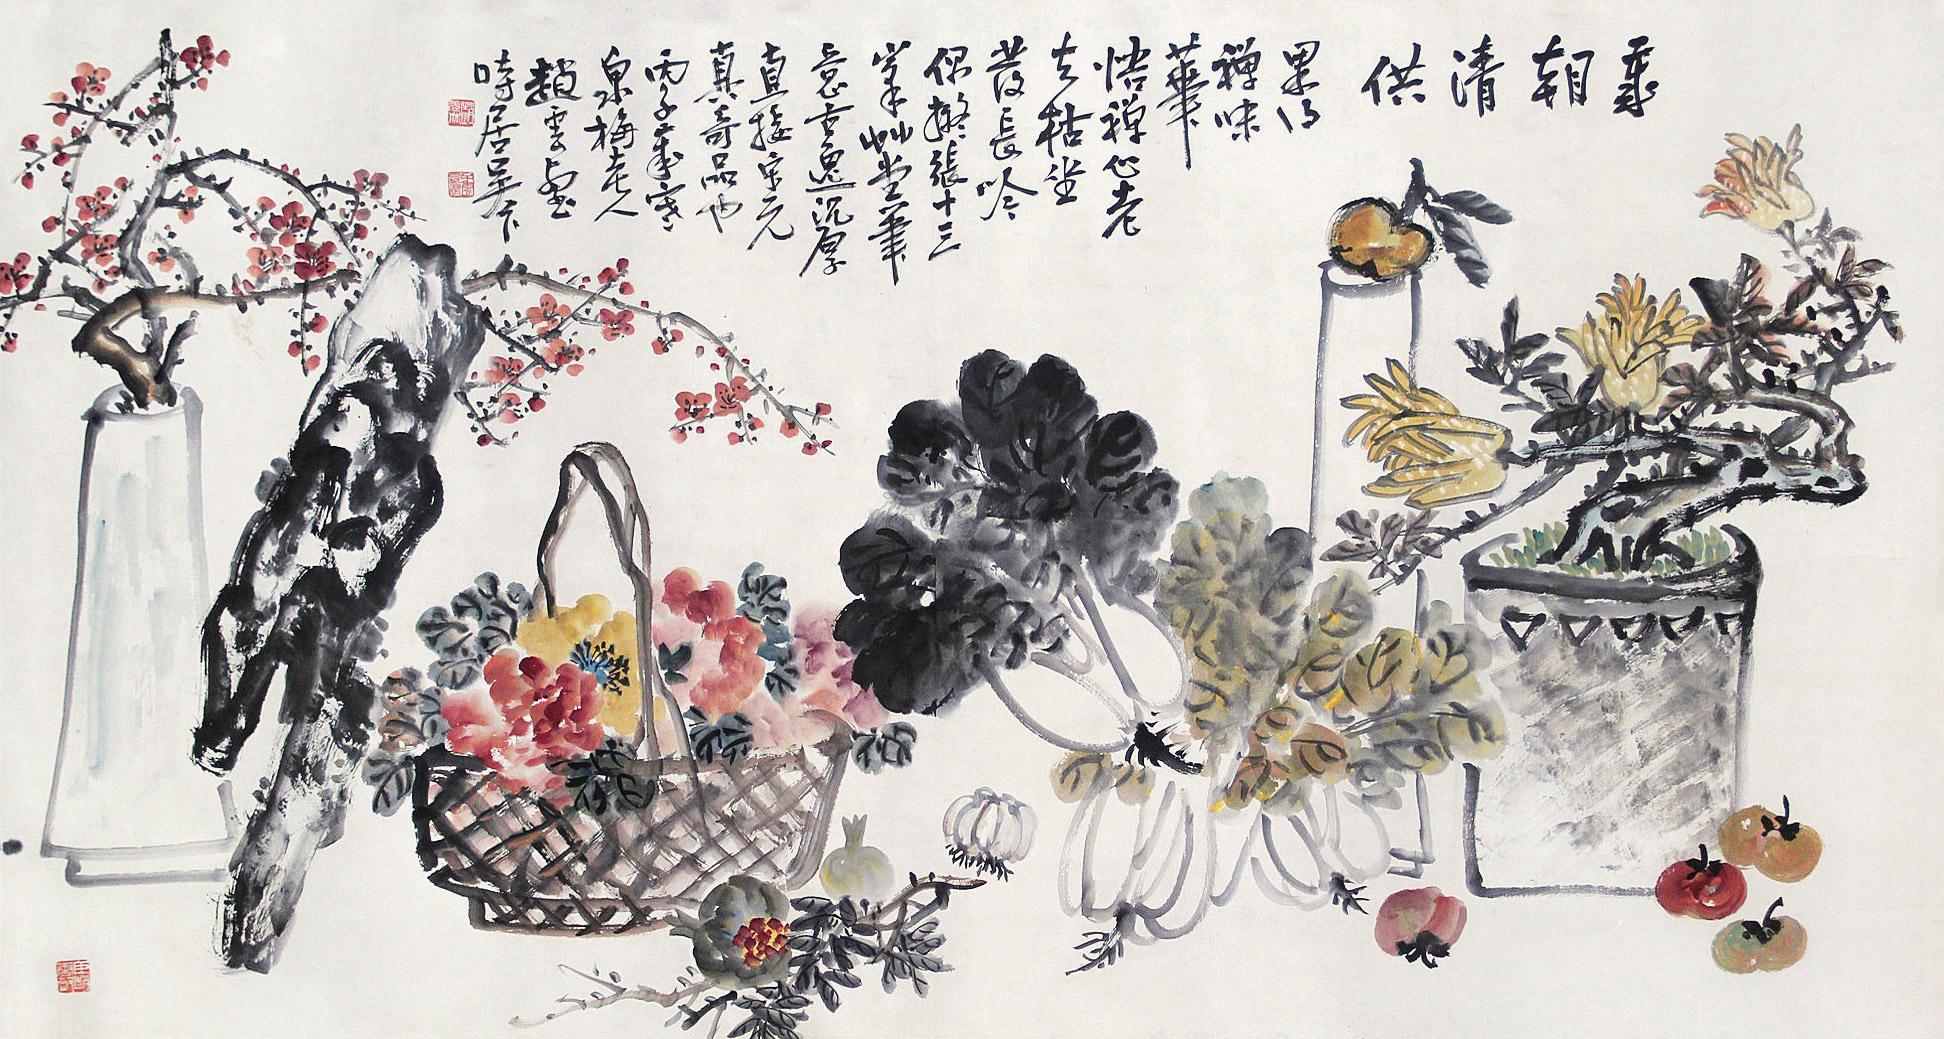 歲朝清供
果得
禪味
華
悟禪心老
去枯坐
發長吟
偶擬張十三
峯草堂筆
意古沉厚
直接宋元
真奇品也
丙子歲寒
泉梅老人
趙雲壑畫
時居吳下